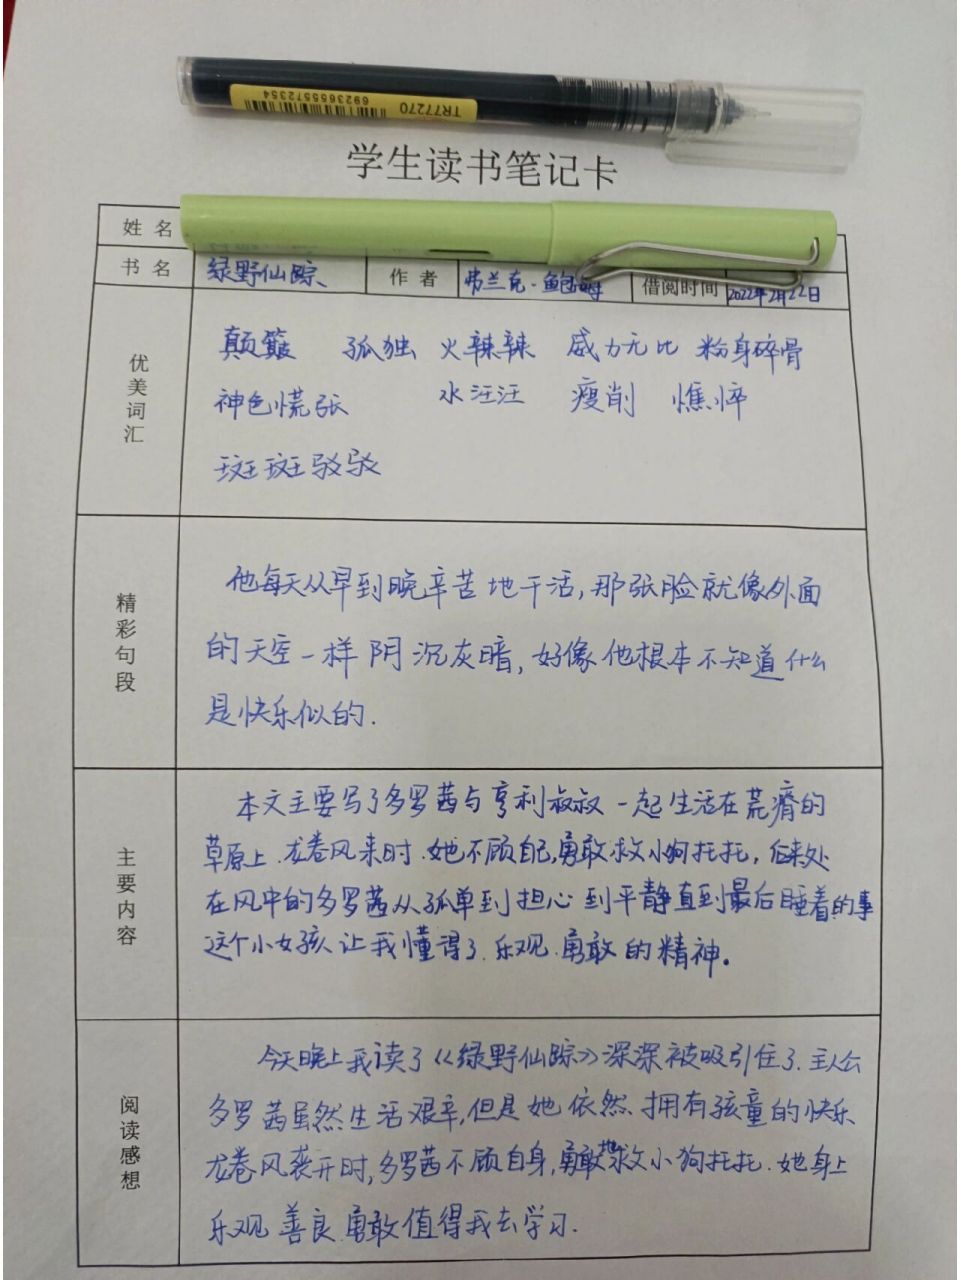 TR77270
6923655572354
学生读书笔记卡
姓名
书名 绿野仙踪 作者 弗兰克·鲍姆 借阅时间 2022年2月22日
优美词汇
颠簸 孤独 火辣辣 威力无比 粉身碎骨
神色慌张 水汪汪 瘦削 憔悴
斑斑驳驳
精彩句段
他每天从早到晚辛苦地干活,那张脸就像外面
的天空一样阴沉灰暗,好像他根本不知道什么
是快乐似的.
主要内容
本文主要写了多罗茜与亨利叔叔一起生活在荒瘠的
草原上.龙卷风来时.她不顾自己,勇敢救小狗托托,后来处
在风中的多罗茜从孤单到担心到平静直到最后睡着的事
这个小女孩让我懂得了.乐观.勇敢的精神.
阅读感想
今天晚上我读了《绿野仙踪》深深被吸引住了.主人公
多罗茜虽然生活艰辛,但是她依然拥有孩童的快乐
龙卷风袭开时,多罗茜不顾自身,勇敢地救小狗托托.她身上
乐观善良勇敢值得我去学习.